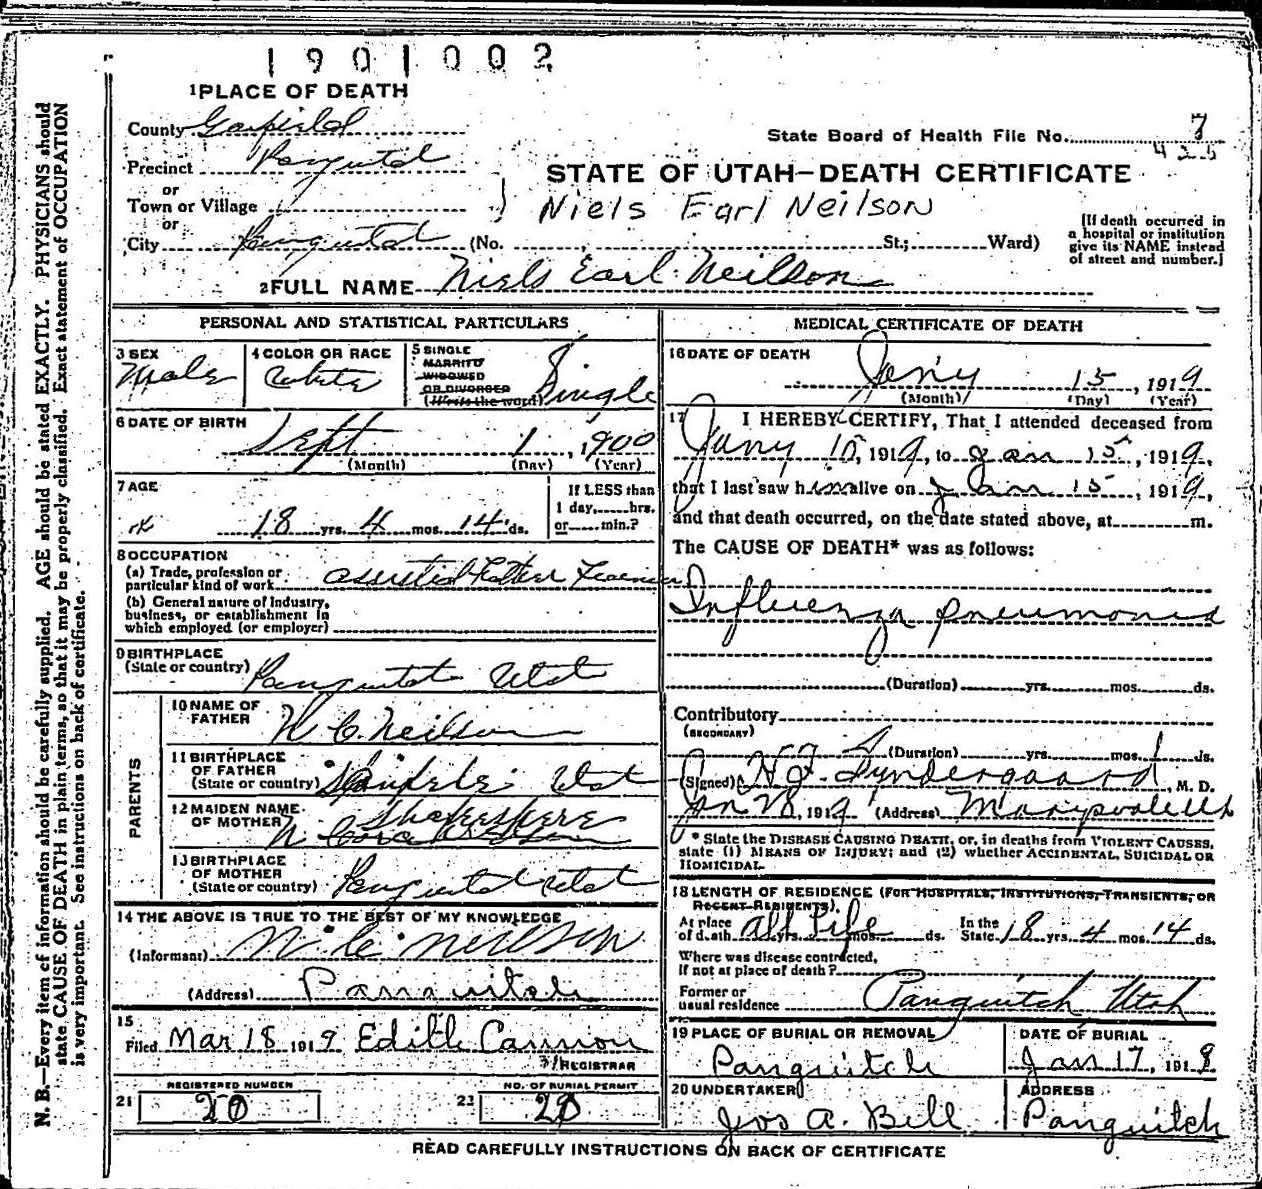 1901002
1 PLACE OF DEATH
County Garfield
State Board of Health File No. 7
425
Precinct Panguitch
STATE OF UTAH—DEATH CERTIFICATE
or
Town or Village
Niels Earl Neilson
or
City Panguitch (No. , St.; Ward)
[If death occurred in
a hospital or institution
give its NAME instead
of street and number.]
2 FULL NAME Niels Earl Neilson
PERSONAL AND STATISTICAL PARTICULARS
3 SEX
Male
4 COLOR OR RACE
White
5 SINGLE
MARRIED
WIDOWED
OR DIVORCED
(Write the word)
Single
6 DATE OF BIRTH
Sept 1, 1900
(Month) (Day) (Year)
7 AGE
18 yrs. 4 mos. 14 ds.
If LESS than
1 day, hrs.
or min.?
8 OCCUPATION
(a) Trade, profession or
particular kind of work assisted Father
(b) General nature of Industry,
business, or establishment in
which employed (or employer)
9 BIRTHPLACE
(State or country) Panguitch Utah
PARENTS
10 NAME OF
FATHER N C Neilson
11 BIRTHPLACE
OF FATHER
(State or country) Utah
12 MAIDEN NAME
OF MOTHER Shakespere
13 BIRTHPLACE
OF MOTHER
(State or country) Panguitch Utah
14 THE ABOVE IS TRUE TO THE BEST OF MY KNOWLEDGE
(Informant) N. C. Neilson
(Address) Panguitch
15
Filed Mar 18 1919 Edith Cannon
REGISTRAR
REGISTERED NUMBER
21 20
NO. OF BURIAL PERMIT
22 20
MEDICAL CERTIFICATE OF DEATH
16 DATE OF DEATH
Jany 15, 1919
(Month) (Day) (Year)
17 I HEREBY CERTIFY, That I attended deceased from
Jany 10, 1919, to Jan 15, 1919,
that I last saw him alive on Jan 15, 1919,
and that death occurred, on the date stated above, at m.
The CAUSE OF DEATH* was as follows:
Influenza pneumonia
(Duration) yrs. mos. ds.
Contributory
(SECONDARY)
(Duration) yrs. mos. ds.
(Signed) , M. D.
Jan 28, 1919 (Address) Marysvale Utah
* State the DISEASE CAUSING DEATH, or, in deaths from VIOLENT CAUSES,
state (1) MEANS OF INJURY; and (2) whether ACCIDENTAL, SUICIDAL OR
HOMICIDAL.
18 LENGTH OF RESIDENCE (FOR HOSPITALS, INSTITUTIONS, TRANSIENTS, OR
RECENT RESIDENTS)
At place
of death All Life yrs. mos. ds. In the
State 18 yrs. 4 mos. 14 ds.
Where was disease contracted,
If not at place of death?
Former or
usual residence Panguitch Utah
19 PLACE OF BURIAL OR REMOVAL
Panguitch
DATE OF BURIAL
Jan 17, 1919
20 UNDERTAKER
Jos A. Bell
ADDRESS
Panguitch
READ CAREFULLY INSTRUCTIONS ON BACK OF CERTIFICATE
N. B.—Every item of information should be carefully supplied. AGE should be stated EXACTLY. PHYSICIANS should
state CAUSE OF DEATH in plain terms, so that it may be properly classified. Exact statement of OCCUPATION
is very important. See instructions on back of certificate.